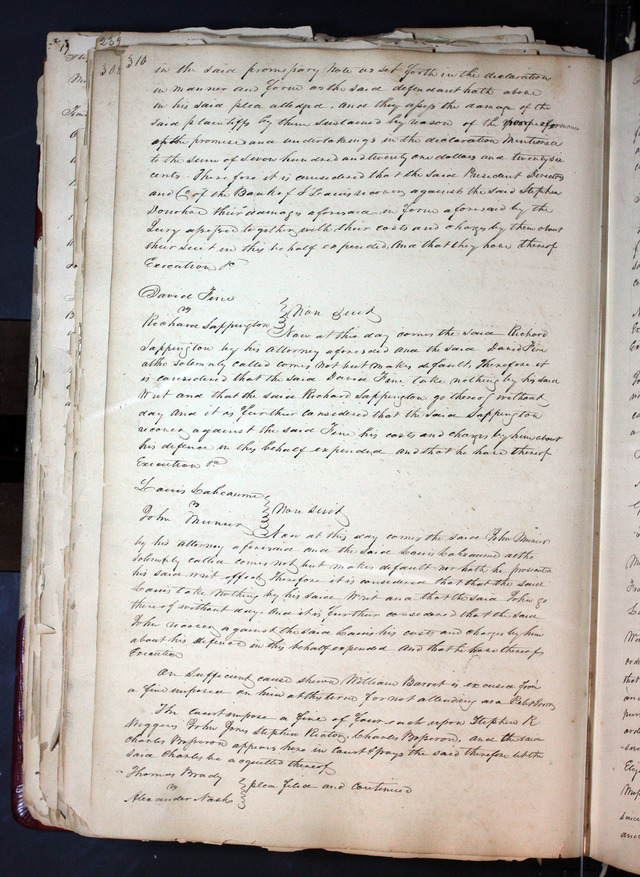 239
310
in the said promissary Note as set forth in the declaration
in manner and forme as the said defendant hath above
in his said plea alledged. And they assess the damage of the
said plaintiffs by them sustained by reason of the
of the promises and undertakings in the declaration Mentioned
to the sum of Seven hundred and twenty one dollars and twenty six
cents. Therefore it is considered that the said President Directors
and Co of the Bank of St Louis recover against the said Stephen
Donohoe their damages aforesaid in forme aforesaid by the
Jury assessed together with their costs and charges by them about
their suit in this behalf expended, And that they have thereof
Execution &c
David Fine
vs
Non Suit
Richard Sappington
Now at this day comes the said Richard
Sappington by his attorney aforesaid and the said David Fine
altho solemnly called comes not but makes default. Therefore it
is considered that the said David Fine take nothing by his said
Writ and that the said Richard Sappington go thereof without
day And it is further considered that the said Sappington
recover against the said Fine his costs and charges by him about
his defence in this behalf expended and that he have thereof
Execution &c
Louis Labeaume
vs
Non Suit
John
Now at this day comes the said John
by his attorney aforesaid and the said Louis Labeaume altho
solemnly called comes not but makes default nor hath he prosecuted
his said writ effect Therefore it is considered that that the said
Louis take nothing by his said Writ and that the said John go
thereof without day. And it is further considered that the said
John recover against the said Louis his costs and charges by him
about his defence in this behalf expended And that he have thereof
Execution
On Sufficient cause shewn William Barret is excused from
a fine imposed on him at this term for not attending as a Petit Juror
The court impose a fine of four each upon Stephen R
Wiggins John Jones Stephen Charles Bosseron, and the said
Charles Bosseron appears here in Court & pays the said therefore let the
said Charles be acquitted thereof
Thomas Brady
vs
plea filed and continued
Alexander Nash